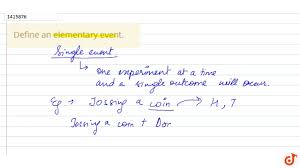 1415876
Define an elementary event.
Single event.
↳ one experiment at a time
and a single outcome will occur.
Eg → Tossing a coin → H, T
Tossing a coin +